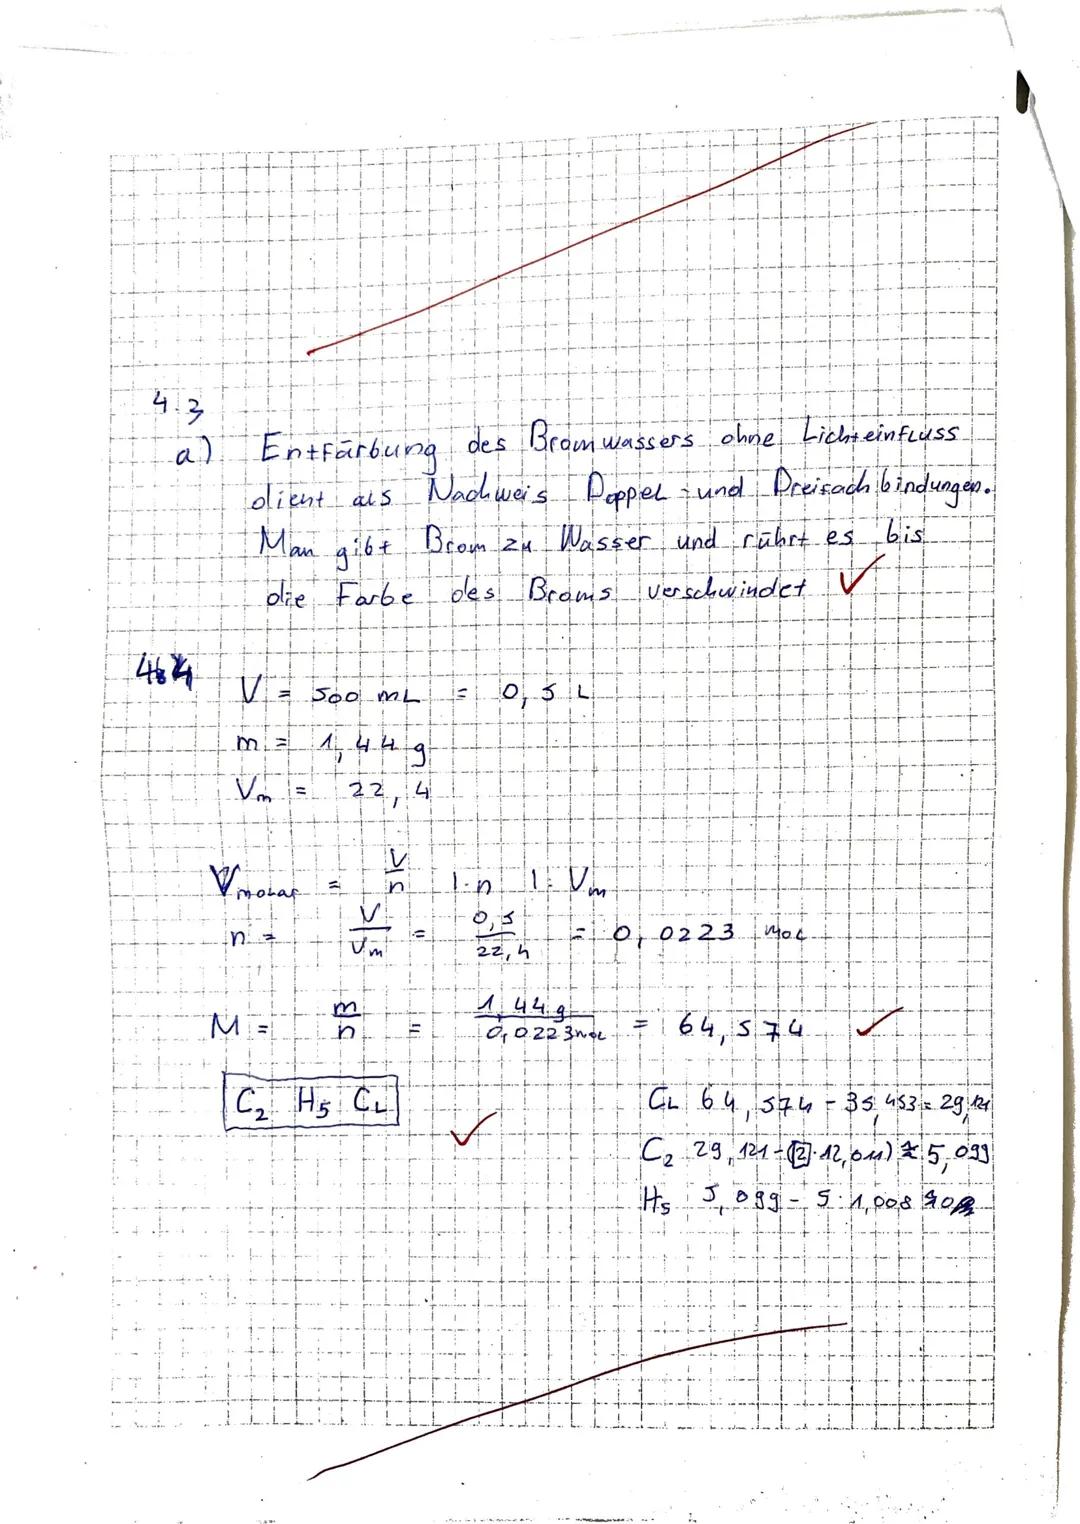 4.3
a) Entfärbung des Bromwassers ohne Lichteinfluss
dient als Nachweis Doppel- und Dreifachbindungen.
Man gibt Brom zu Wasser und rührt es bis
die Farbe des Broms verschwindet ✓
4.4
V = 500 mL = 0,5 L
m = 1,44 g
Vm = 22,4
Vmolar = V/n |·n |: Vm
n = V/Vm = 0,5/22,4 = 0,0223 mol
M = m/n = 1,44 g/0,0223 mol = 64,574 ✓
C₂ H₅ CL ✓
CL 64,574 - 35,453 = 29,121
C₂ 29,121 - (2·12,011) ≈ 5,099
H₅ 5,099 - 5·1,008 ≈ 0